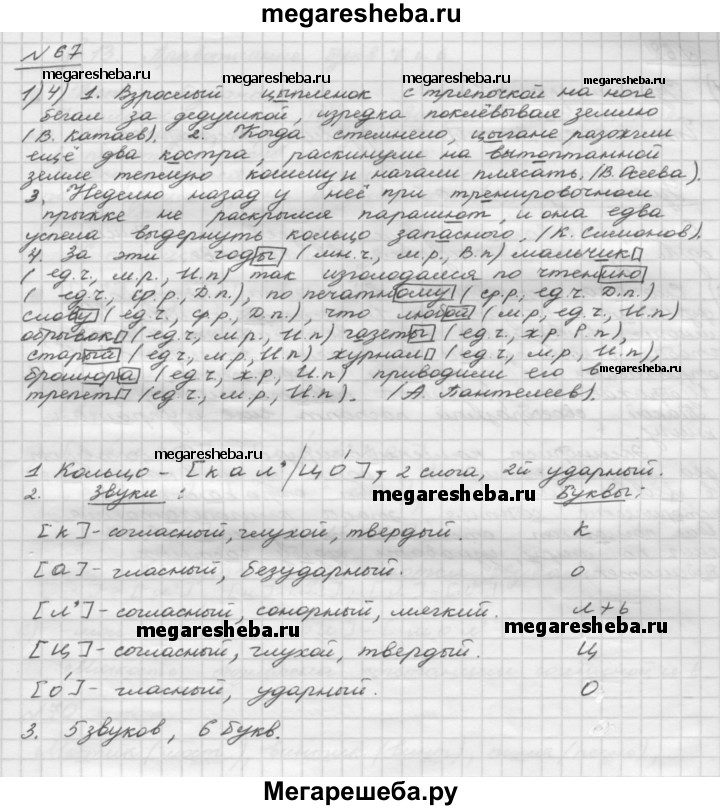 megaresheba.ru
№ 67
megaresheba.ru
1) 4) 1. Взрослый цыпленок с тряпочкой на ноге
бегал за дедушкой, изредка поклёвывая землю
(В. Катаев). 2. Когда стемнело, цыгане разожгли
ещё два костра, раскинули на вытоптанной
земле теплую кошму и начали плясать. (В. Осеева).
3. Неделю назад у неё при тренировочном
прыжке не раскрылся парашют, и она едва
успела выдернуть кольцо запасного. (К. Симонов).
4. За эти годы (мн.ч., м.р., В.п) мальчик
(ед.ч., м.р., И.п) так изголодался по чтению
(ед.ч., ср.р., Д.п.), по печатному (ср.р, ед.ч. Д.п.)
слову (ед.ч., ср.р, Д.п.), что любой (м.р, ед.ч., И.п)
обрывок (ед.ч., м.р., И.п) газеты (ед.ч., ж.р. Р.п),
старый (ед.ч., м.р, И.п) журнал (ед.ч., м.р, И.п),
брошюра (ед.ч., ж.р, И.п) приводили его в
megaresheba.ru
трепет (ед.ч., м.р, И.п). (А. Пантелеев).
megaresheba.ru
1 Кольцо - [к а л' / ц о́ ], 2 слога, 2й ударный.
megaresheba.ru
2. Звуки : Буквы:
megaresheba.ru
[к] - согласный, глухой, твердый. К
[а] - гласный, безударный. о
[л'] - согласный, сонорный, мягкий. л + ь
megaresheba.ru megaresheba.ru
[ц] - согласный, глухой, твердый. Ц
[о́] - гласный, ударный. О
3. 5 звуков, 6 букв.
Мегарешеба.ру